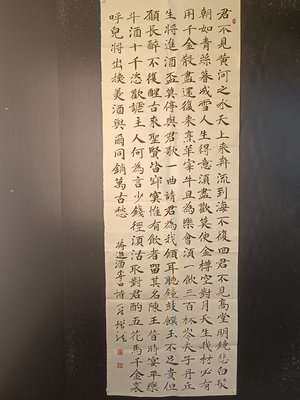 君不見黃河之水天上來奔流到海不復回君不見高堂明鏡悲白髮
朝如青絲暮成雪人生得意須盡歡莫使金樽空對月天生我材必有
用千金散盡還復來烹羊宰牛且為樂會須一飲三百杯岑夫子丹丘
生將進酒盃莫停與君歌一曲請君為我傾耳聽鐘鼓饌玉不足貴但
願長醉不復醒古來聖賢皆寂寞惟有飲者留其名陳王昔時宴平樂
斗酒十千恣歡謔主人何為言少錢徑須沽取對君酌五花馬千金裘
呼兒將出換美酒與爾同銷萬古愁
將進酒李白詩